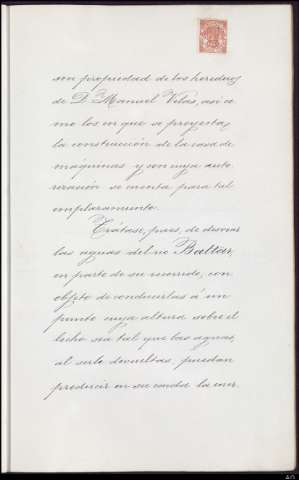 son propiedad de los herederos
de D. Manuel Vilas, asi co
mo los en que se proyecta
la construcción de la casa de
máquinas y con cuya auto
rización se cuenta para tal
emplazamiento.
Trátase, pues, de desviar
las aguas del rio Baltar,
en parte de su recorrido, con
objeto de conducirlas á un
punto cuya altura sobre el
lecho sea tal que las aguas,
al serle devueltas, puedan
producir en su caida la ener